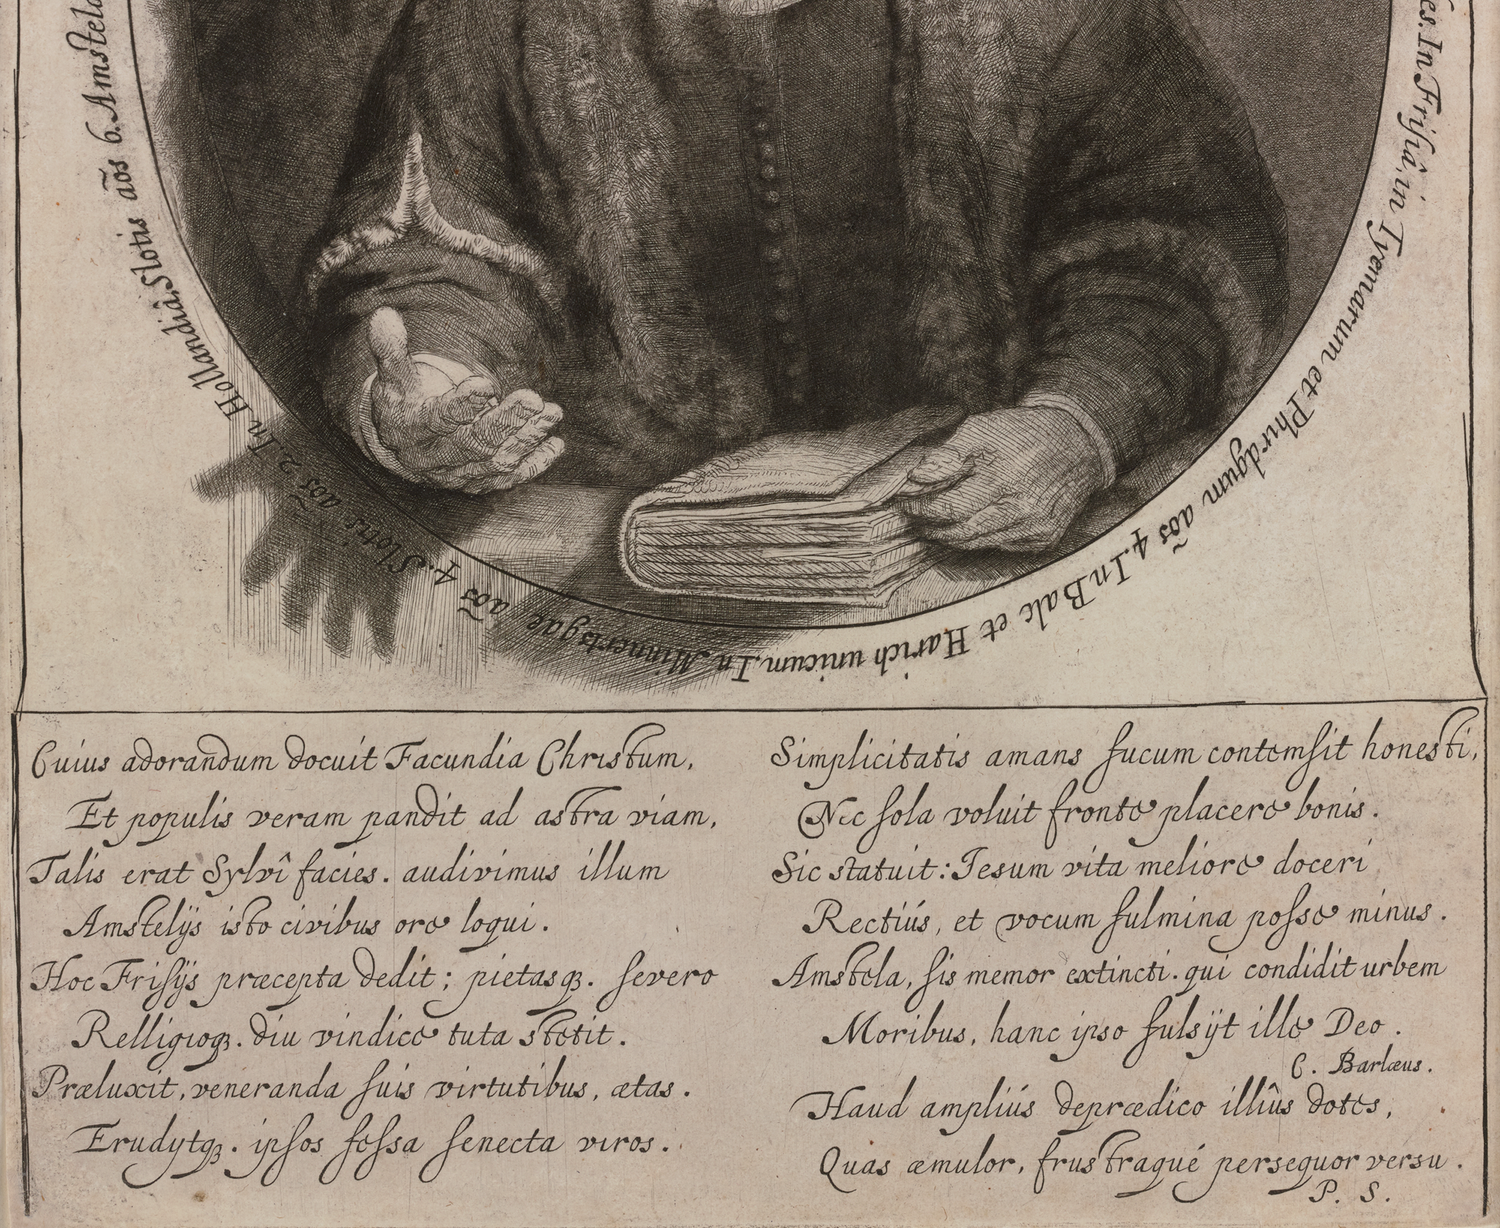 es. In Frisiâ, in Tyemarum et Phirdgum aõs 4. In Balc et Harich unicum. In Minnertsgae aõs 4. Slotis aõs 2. In Hollandiâ, Slotis aõs 6. Amstelo
Cuius adorandum docuit Facundia Christum,
Et populis veram pandit ad astra viam,
Talis erat Sylvî facies. audivimus illum
Amstelijs isto civibus ore loqui.
Hoc Frisijs præcepta dedit; pietasq3. severo
Relligioq3. diu vindice tuta stetit.
Præluxit, veneranda suis virtutibus, ætas.
Erudytq3. ipsos fessa senecta viros.
Simplicitatis amans fucum contemsit honesti,
Nec sola voluit fronte placere bonis.
Sic statuit: Jesum vita meliore doceri
Rectiús, et vocum fulmina posse minus.
Amstela, sis memor extincti. qui condidit urbem
Moribus, hanc ipso fulsijt ille Deo.
C. Barlæus.
Haud ampliús deprædico illiûs dotes,
Quas æmulor, frustraqué persequor versu.
P. S.